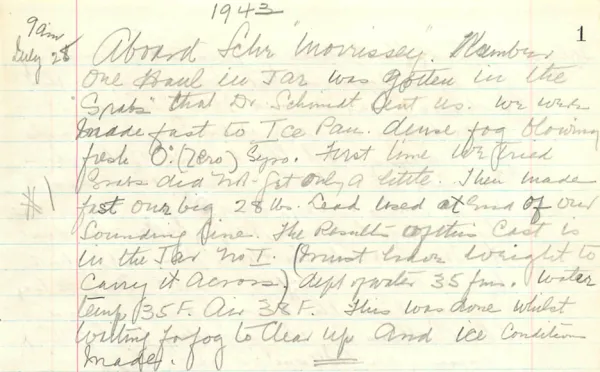 1943
1
9am
July 28
Aboard Schr "Morrissey". Number
One Haul in Jar was gotten in the
"Grabs" that Dr. Schmidt lent us. We were
made fast to Ice Pan. dense fog blowing
fresh 0° (zero) Gyro. First time we tried
Grabs did not get only a little. Then made
#1
fast our big 28 lb. Lead used at End of our
Sounding line. The Results of this Cast is
in the Jar No I. (must have weight to
Carry it Across) dept of water 35 fms. Water
temp 35 F. Air 38 F. This was done whilst
Waiting fo fog to Clear up And ice Condition
Made.